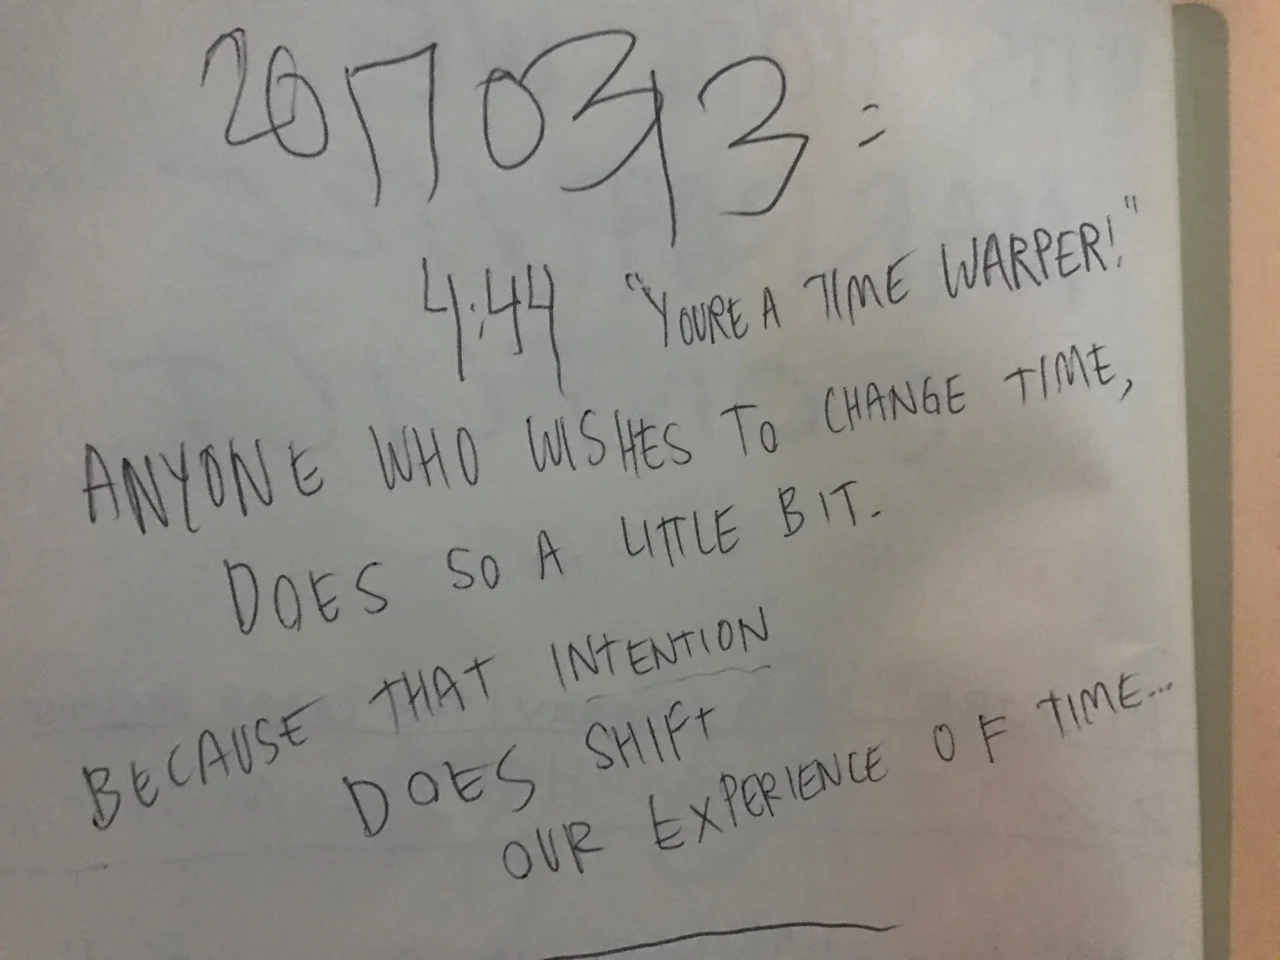 20170313 =
4:44 "YOURE A TIME WARPER!"
ANYONE WHO WISHES TO CHANGE TIME,
DOES SO A LITTLE BIT.
BECAUSE THAT INTENTION
DOES SHIFT
OUR EXPERIENCE OF TIME...